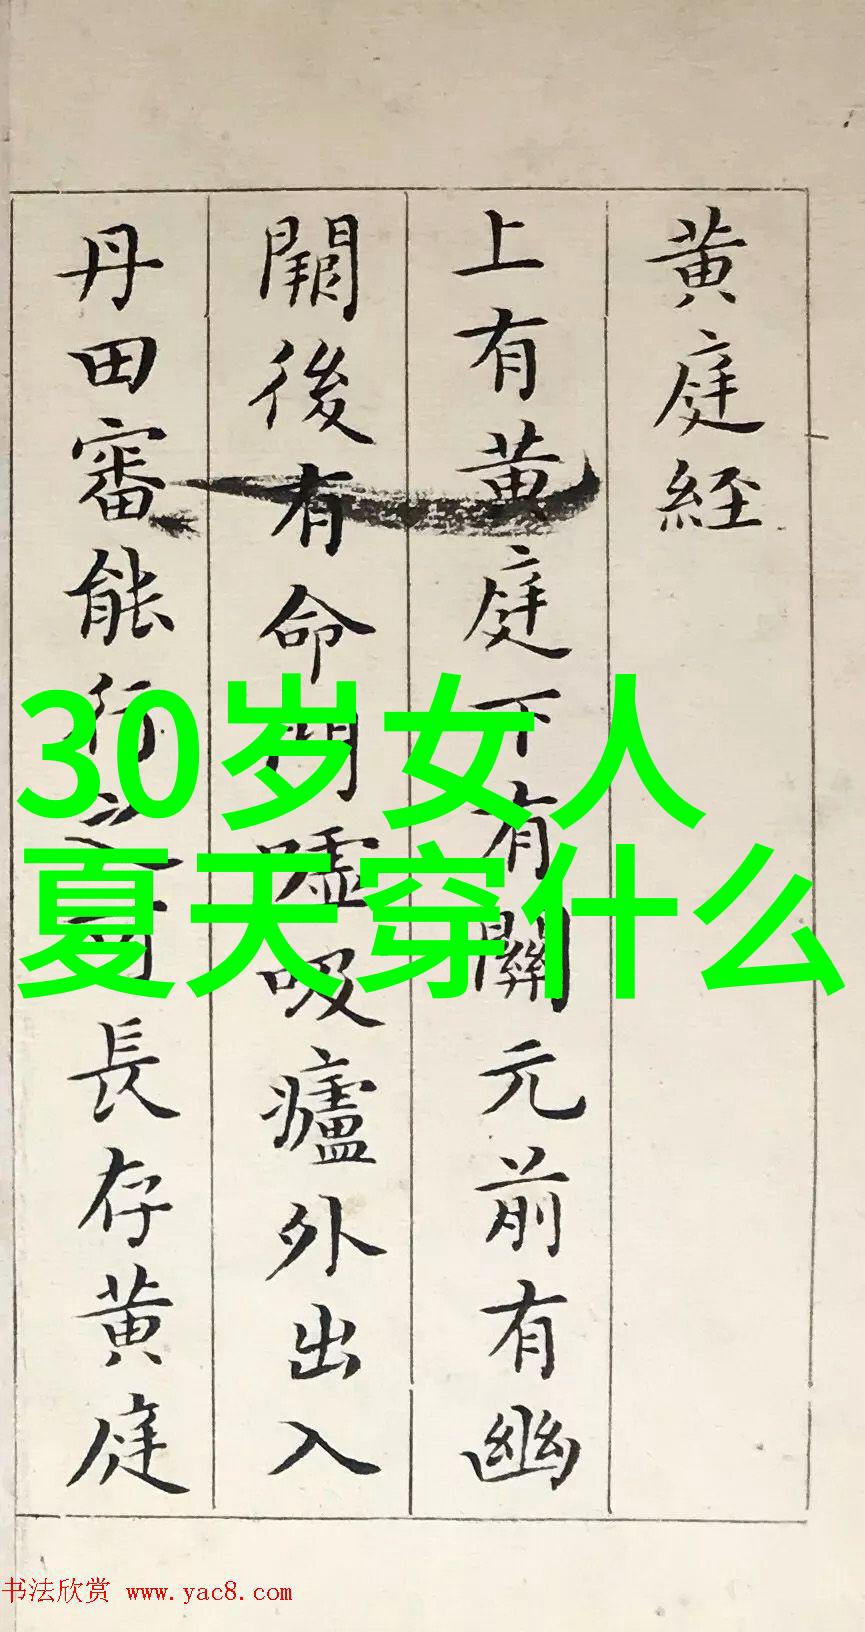 黄庭経
上有黄庭下有關元前有幽
闕後有命門噓吸廬外出入
丹田審能行之可長存黄庭
30岁女人
夏天穿什么
书法欣赏 www.yac8.com